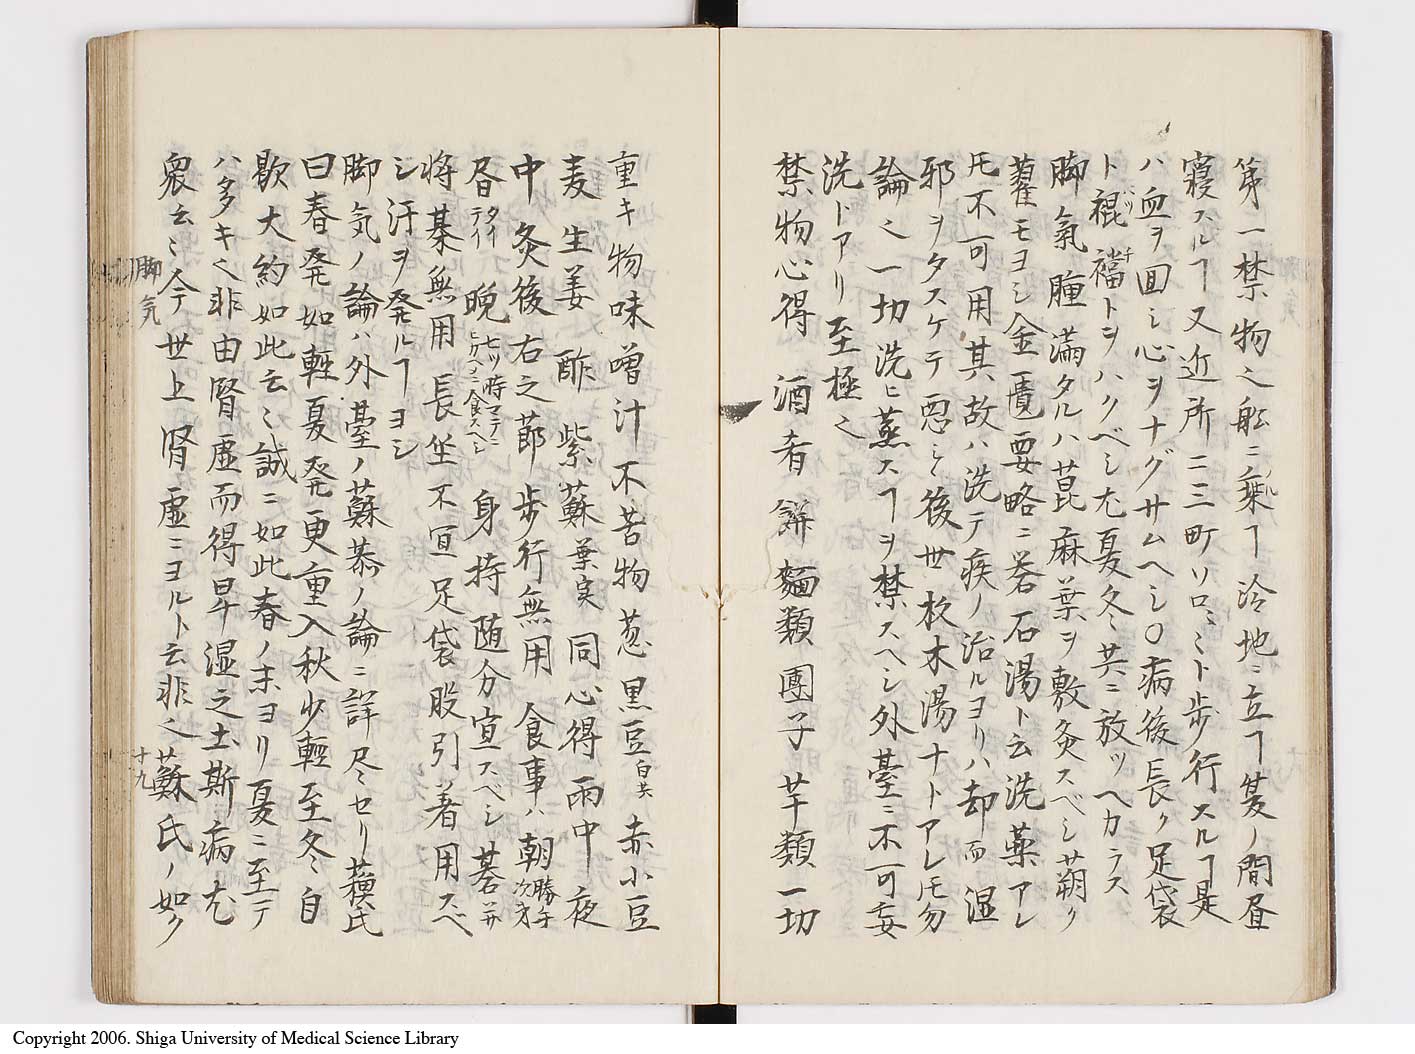 第一禁物之船ニ乗ヿ冷地ニ立ヿ夏ノ間昼
寝スルヿ又近所二三町ソロ〳〵ト歩行スルヿ是
ハ血ヲ回シ心ヲナグサムヘシ〇病後長ク足袋
ト裩襠トヲハクベシ尤夏冬共ニ放ツヘカラス
脚氣腫満タルハ蓖麻葉ヲ敷灸スベシ蒴ク
藋モヨシ金匱要略ニ礬石湯ト云洗薬アレ
𪜈不可用其故ハ洗テ疾ノ治ルヨリハ却而湿
邪ヲタスケテ悪シ後世杉木湯ナトアレ𪜈勿
論之一切洗ヒ蒸スヿヲ禁スヘシ外臺ニ不可妄
洗トアリ至極之
禁物心得 酒肴 餅 麺類 團子 芋類 一切
重キ物味噌汁不苦物葱黒豆白共赤小豆
麦 生姜 酢 紫蘇葉実 同心得雨中夜
中 灸後右之節歩行無用 食事ハ朝勝手次第
昼タイテイ晩七ツ時マテニヒカヘメニ食スヘシ 身持随分宜スベシ 碁并
将棊無用 長坐不宜足袋股引着用スベ
シ汗ヲ発ルヿヨシ
脚気ノ論ハ外臺ノ蘇恭ノ論ニ詳尽セリ蘓氏
曰春発如軽夏発更重入秋少軽至冬自
歇大約如此云〻誠ニ如此春ノ末ヨリ夏ニ至テ
ハ多キ之非由腎虚而得卑湿之土斯病尤
衆云〻今世上腎虚ニヨルト云非之蘇氏ノ如ク
脚気
十九